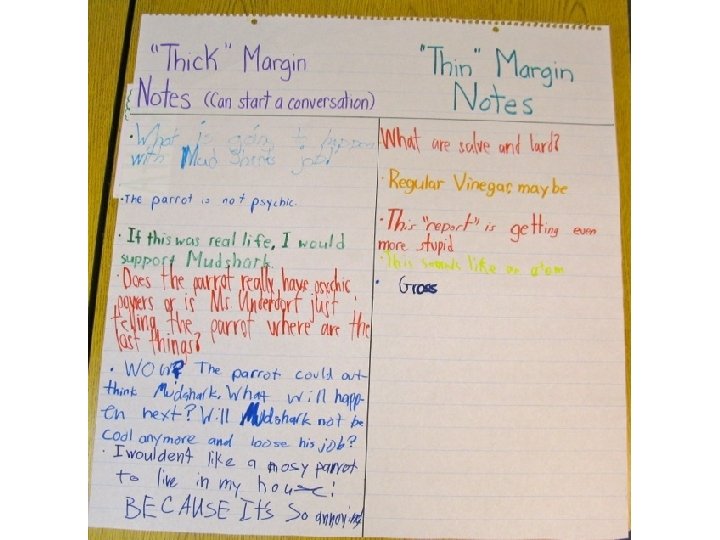 "Thick" Margin
Notes (Can start a conversation)
• What is going to happen
with Mud Sharks job?
• The parrot is not psychic.
• If this was real life, I would
support Mudshark.
• Does the parrot really have psychic
powers or is Ms Underdorf just
telling the parrot where are the
last things?
• WOW? The parrot could out-
think Mudshark. What will happ-
en next? Will Mudshark not be
cool anymore and loose his job?
• I wouldent like a nosy parrot
to live in my house!
BECAUSE It's So annoying
"Thin" Margin
Notes
What are salve and lard?
• Regular Vinegar maybe
• This "report" is getting even
more stupid
• This like an atom
• Gross